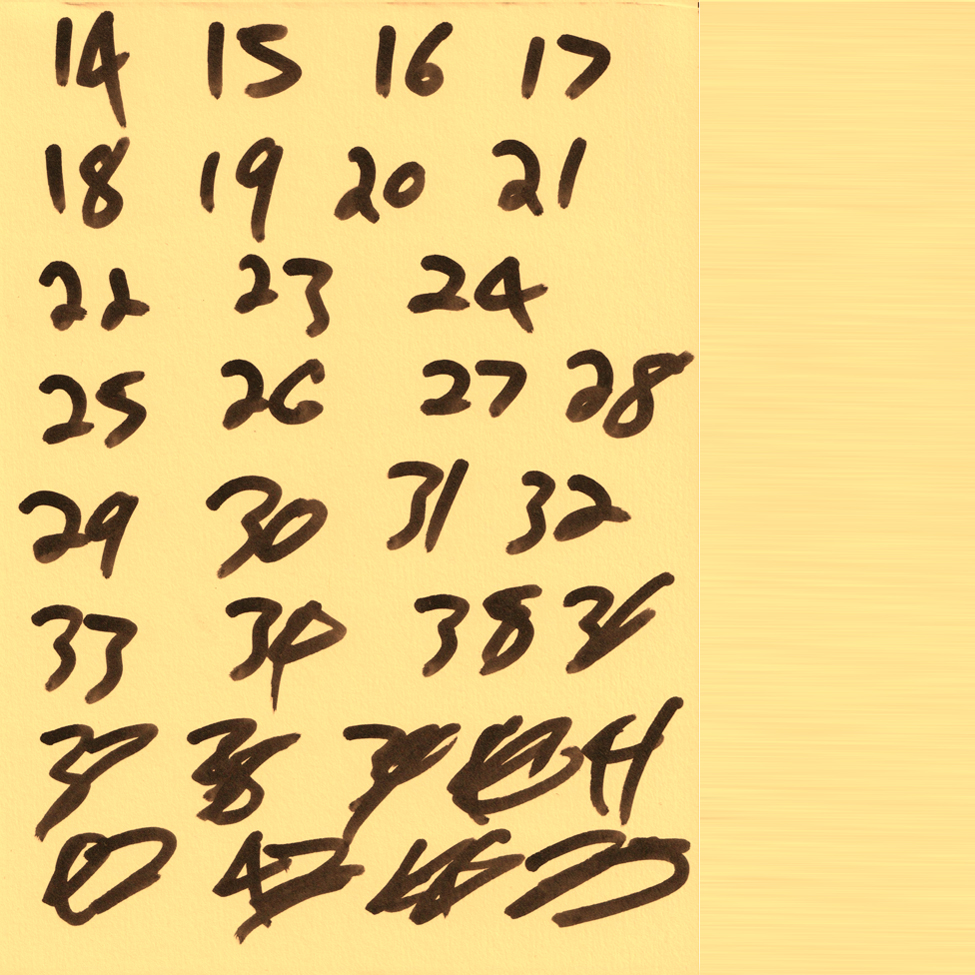 14 15 16 17
18 19 20 21
22 23 24
25 26 27 28
29 30 31 32
33 34 38 36
37 38 39 41